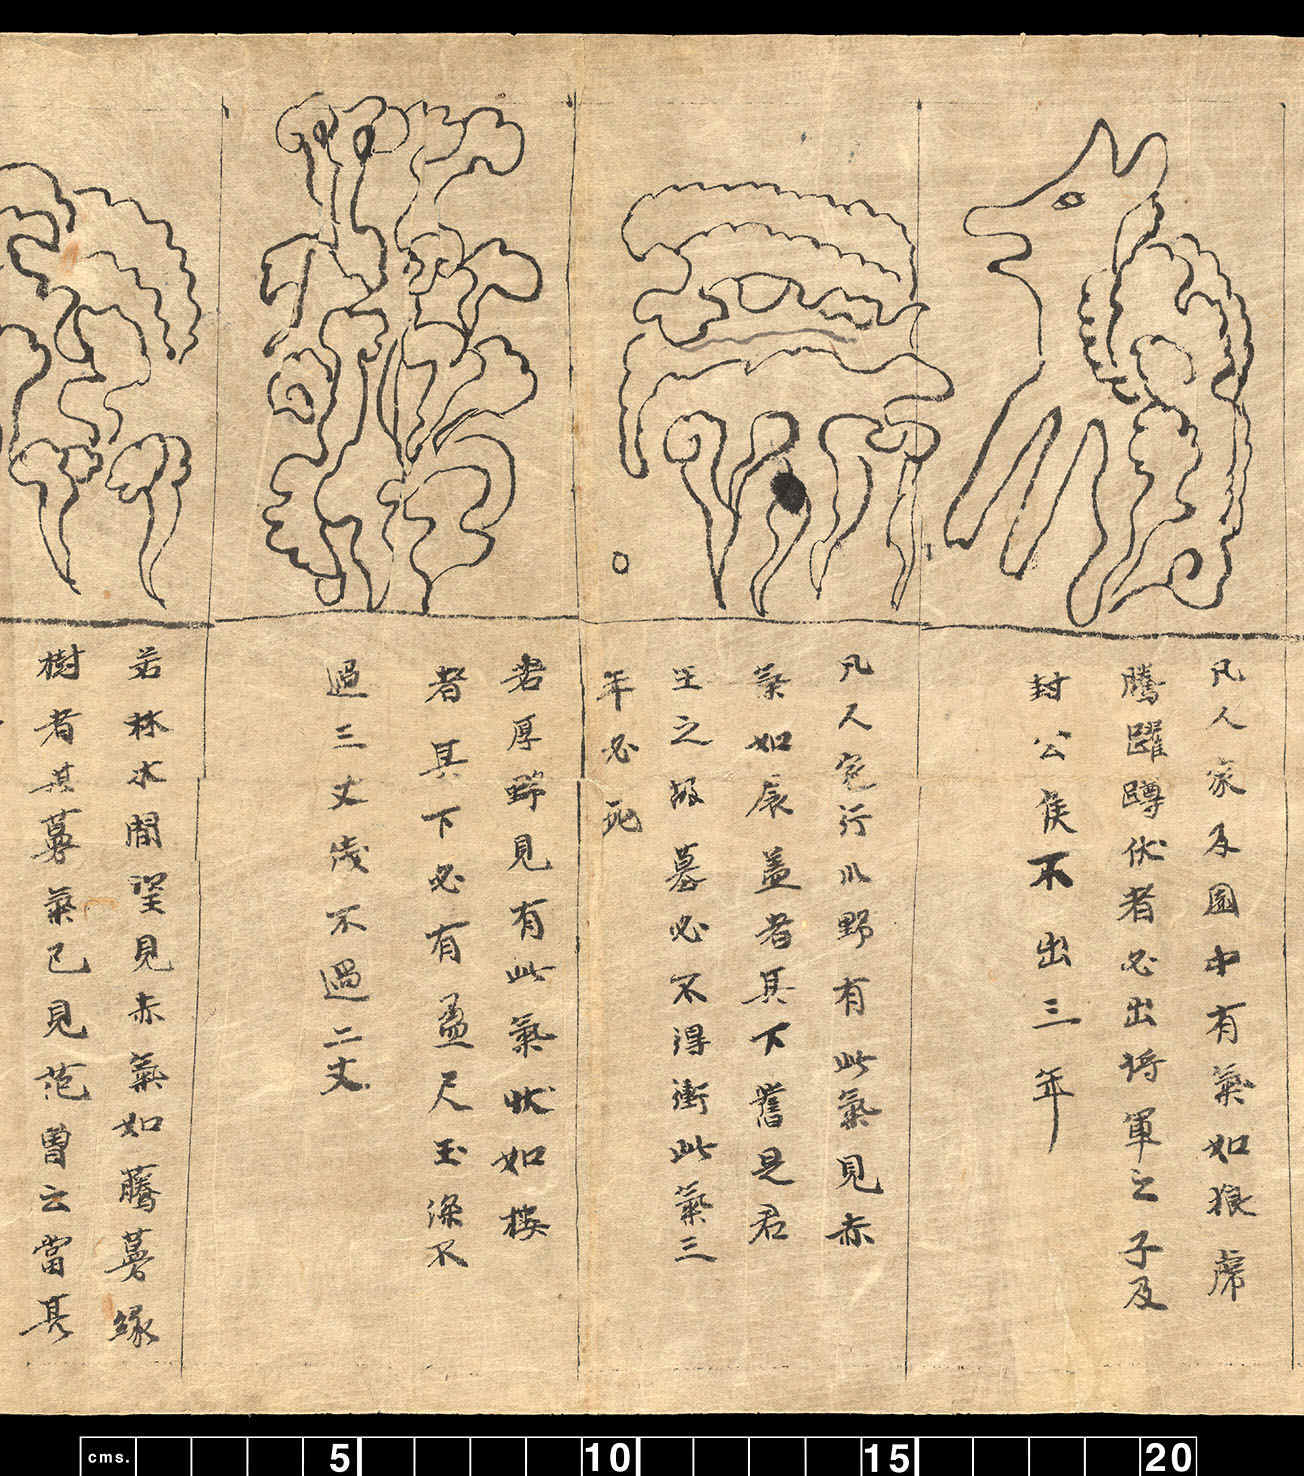 凡人家及園中有氣如狼虎
騰躍蹲伏者必出將軍之子及
封公侯不出三年
凡人家行川野有此氣見赤
氣如辰蓋者其下舊是君
王之墓必不得衝此氣三
年必死
若厚野見有此氣狀如樓
者其下必有盈尺玉深不
過三丈淺不過二丈
若林木間望見赤氣如騰蔓緣
樹者其蔓氣已見范曾云當其
cms. 5 10 15 20